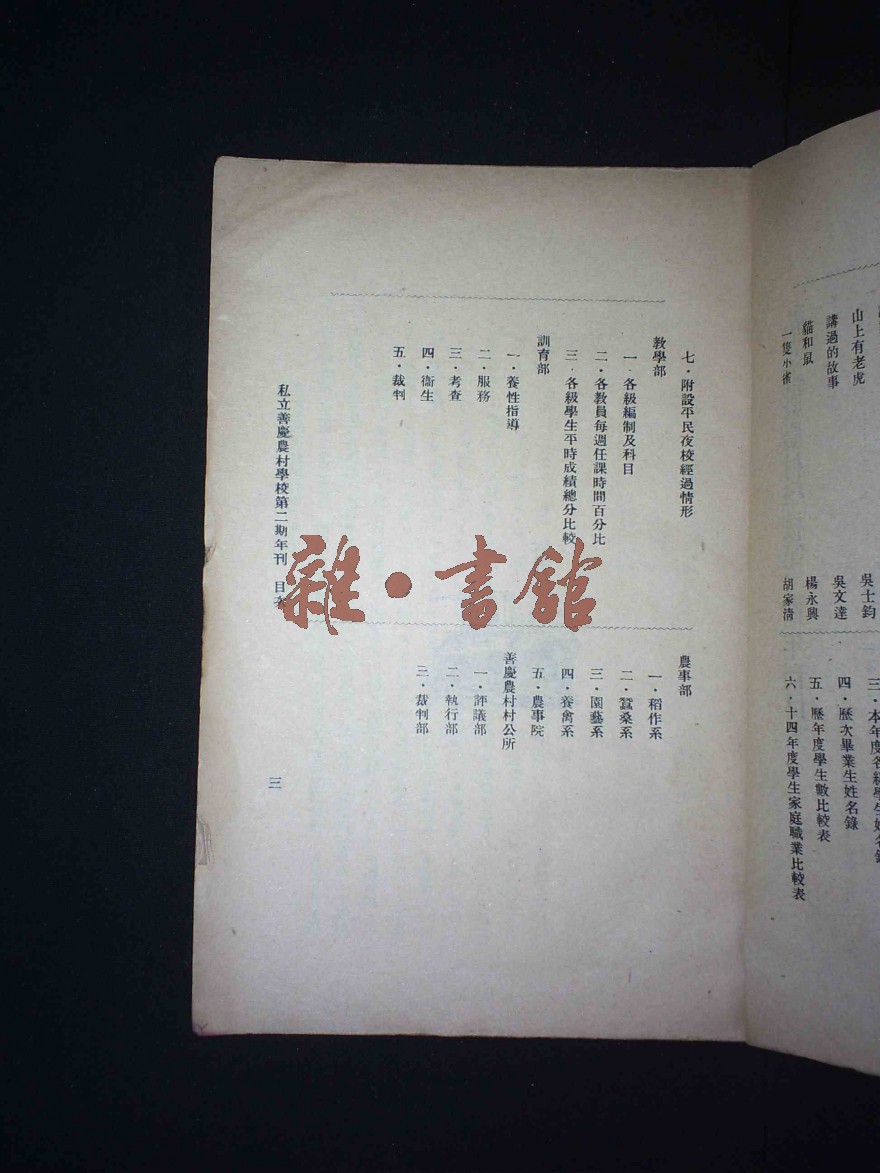 山上有老虎
講過的故事
貓和鼠
一隻小雀
吳士鈞
吳文達
楊永興
胡家清
三．本年度各級學生姓名錄
四．歷次畢業生姓名錄
五．歷年度學生數比較表
六．十四年度學生家庭職業比較表
七．附設平民夜校經過情形
教學部
一．各級編制及科目
二．各教員每週任課時間百分比
三．各級學生平時成績總分比較
訓育部
一．養性指導
二．服務
三．考查
四．衛生
五．裁判
農事部
一．稻作系
二．蠶桑系
三．園藝系
四．養禽系
五．農事院
善慶農村村公所
一．評議部
二．執行部
三．裁判部
私立善慶農村學校第二期年刊 目次
三
雜·書館